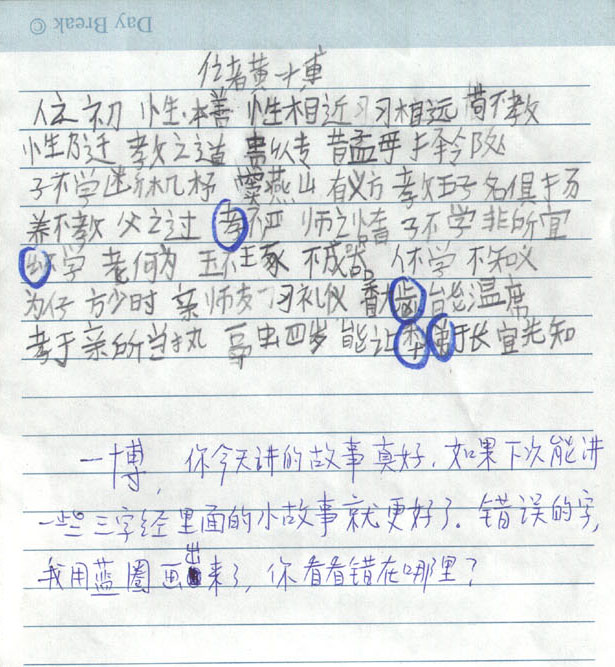 Day Break ©
作者黄一博
人之初 性本善 性相近 习相远 苟不教
性乃迁 教之道 贵以专 昔孟母 择邻处
子不学 断机杼 窦燕山 有义方 教五子 名俱扬
养不教 父之过 不严 师之惰 子不学 非所宜
学 老何为 玉不琢 不成器 人不学 不知义
为人子 方少时 亲师友 习礼仪 香 能温席
孝于亲 所当执 融四岁 能让 于长 宜先知
一博，你今天讲的故事真好，如果下次能讲
一些三字经里面的小故事就更好了。错误的字，
我用蓝圈画出来了，你看看错在哪里？